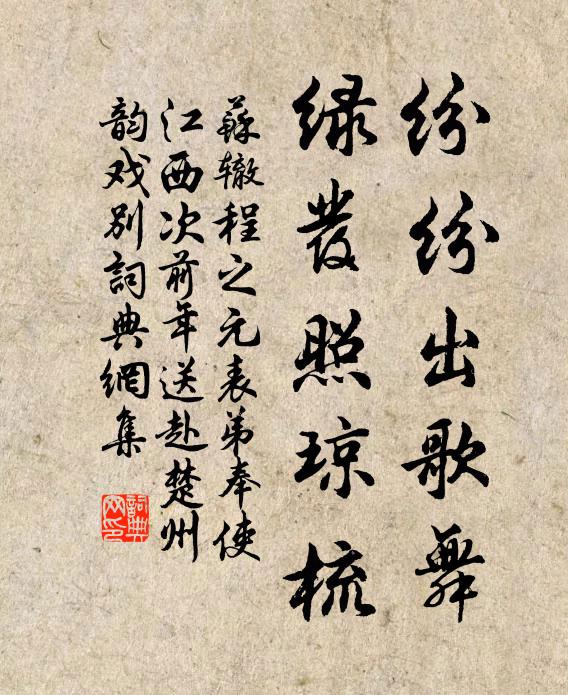 纷纷出歌舞
绿发照琼梳
蘇辙程之元表弟奉使
江西次前年送赴楚州
韵戏别詞典網集
詞典网印